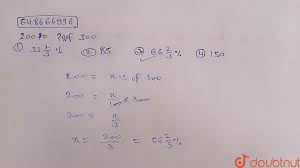 648666996
200 = ? of 300
① 33 2/3 % ② 85 ③ 66 2/3 % ④ 150
200 = x % of 300
200 = x/100 × 300
200 = x/3
x = 200/3 = 66 2/3 %
doubtnut